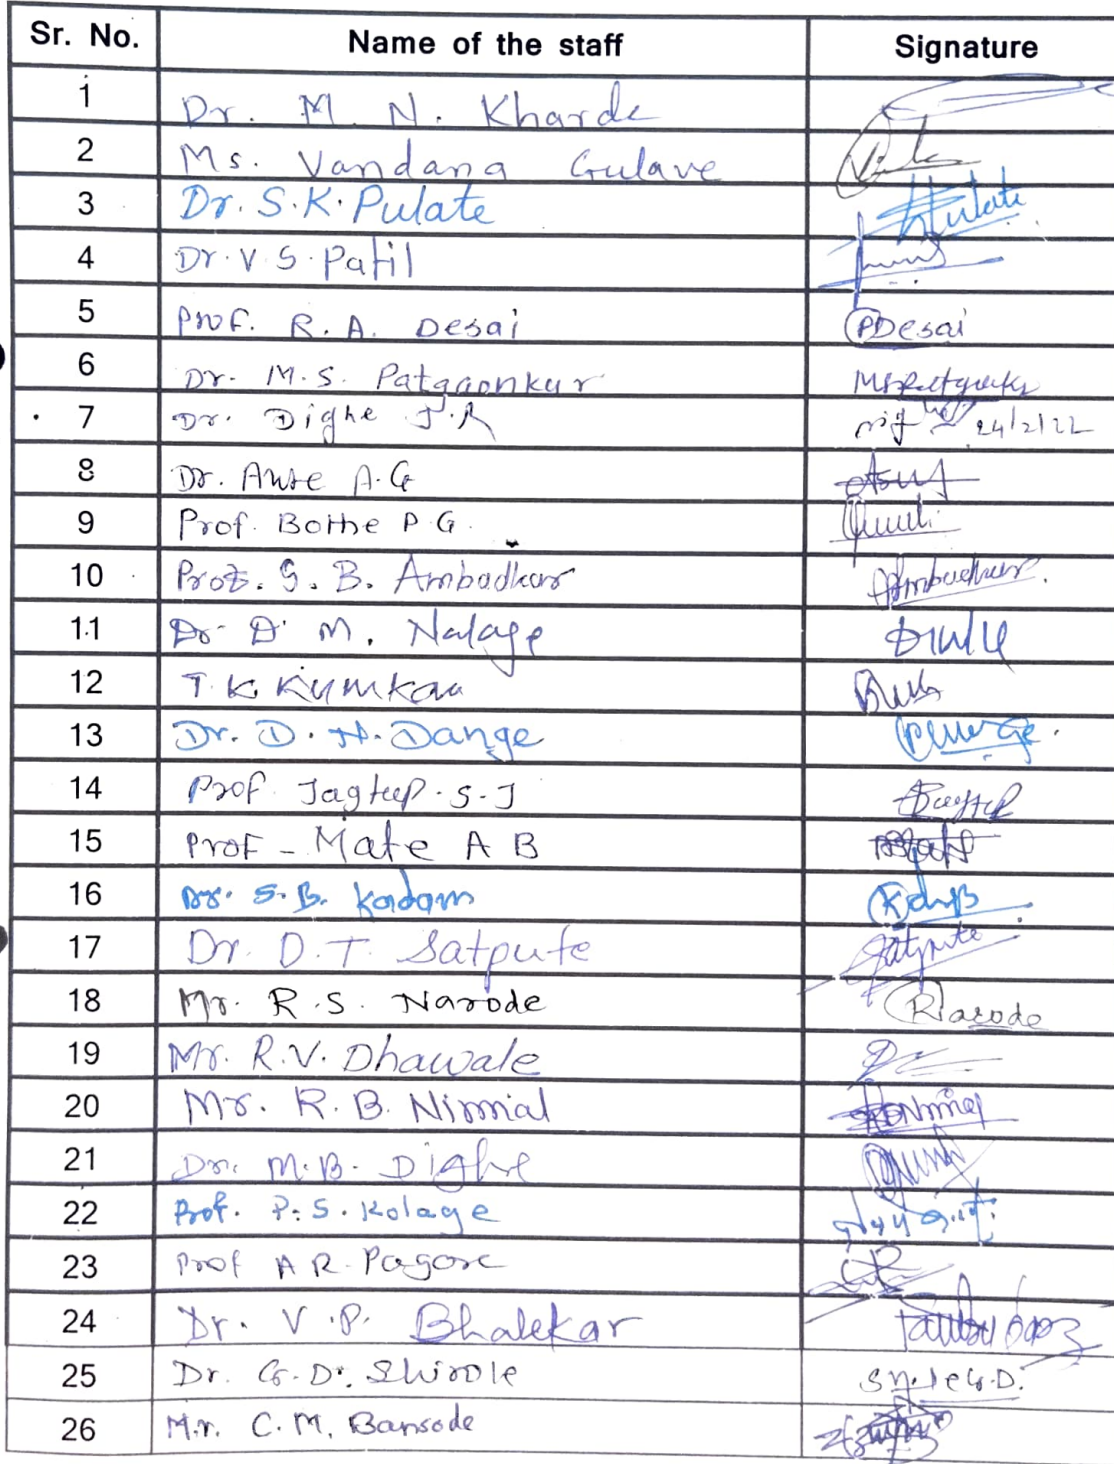 Sr. No. Name of the staff Signature
1 Dr. M. N. Kharde
2 Ms. Vandana Gulave
3 Dr. S. K. Pulate Pulate
4 Dr. V. S. Patil
5 Prof. R. A. Desai PDesai
6 Dr. M. S. Patgaonkar
7 Dr. Dighe J. R 24/2/22
8 Dr. Aute A. G
9 Prof. Bothe P. G.
10 Prof. S. B. Ambadkar Ambadkar.
11 Dr. D. M. Nalage
12 T. K. Kumkar
13 Dr. D. N. Dange
14 Prof. Jagtap. S. J
15 Prof - Mate A B
16 Dr. S. B. Kadam
17 Dr. D. T. Satpute Satpute
18 Mr. R. S. Narode RNarode
19 Mr. R. V. Dhawale
20 Mr. R. B. Nirmal
21 Dr. M. B. Dighe
22 Prof. P. S. Kolage
23 Prof A R. Pagore
24 Dr. V. P. Bhalekar
25 Dr. G. D. Shirole
26 Mr. C. M. Bansode